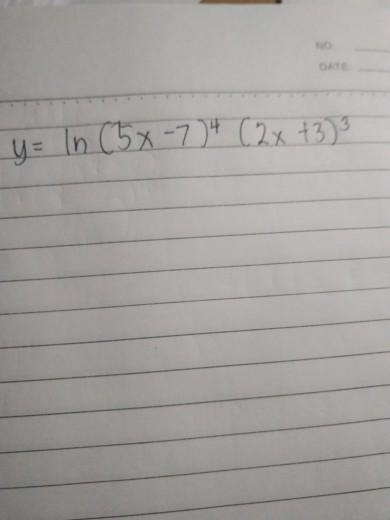 NO.
DATE
y = ln (5x - 7)⁴ (2x + 3)³